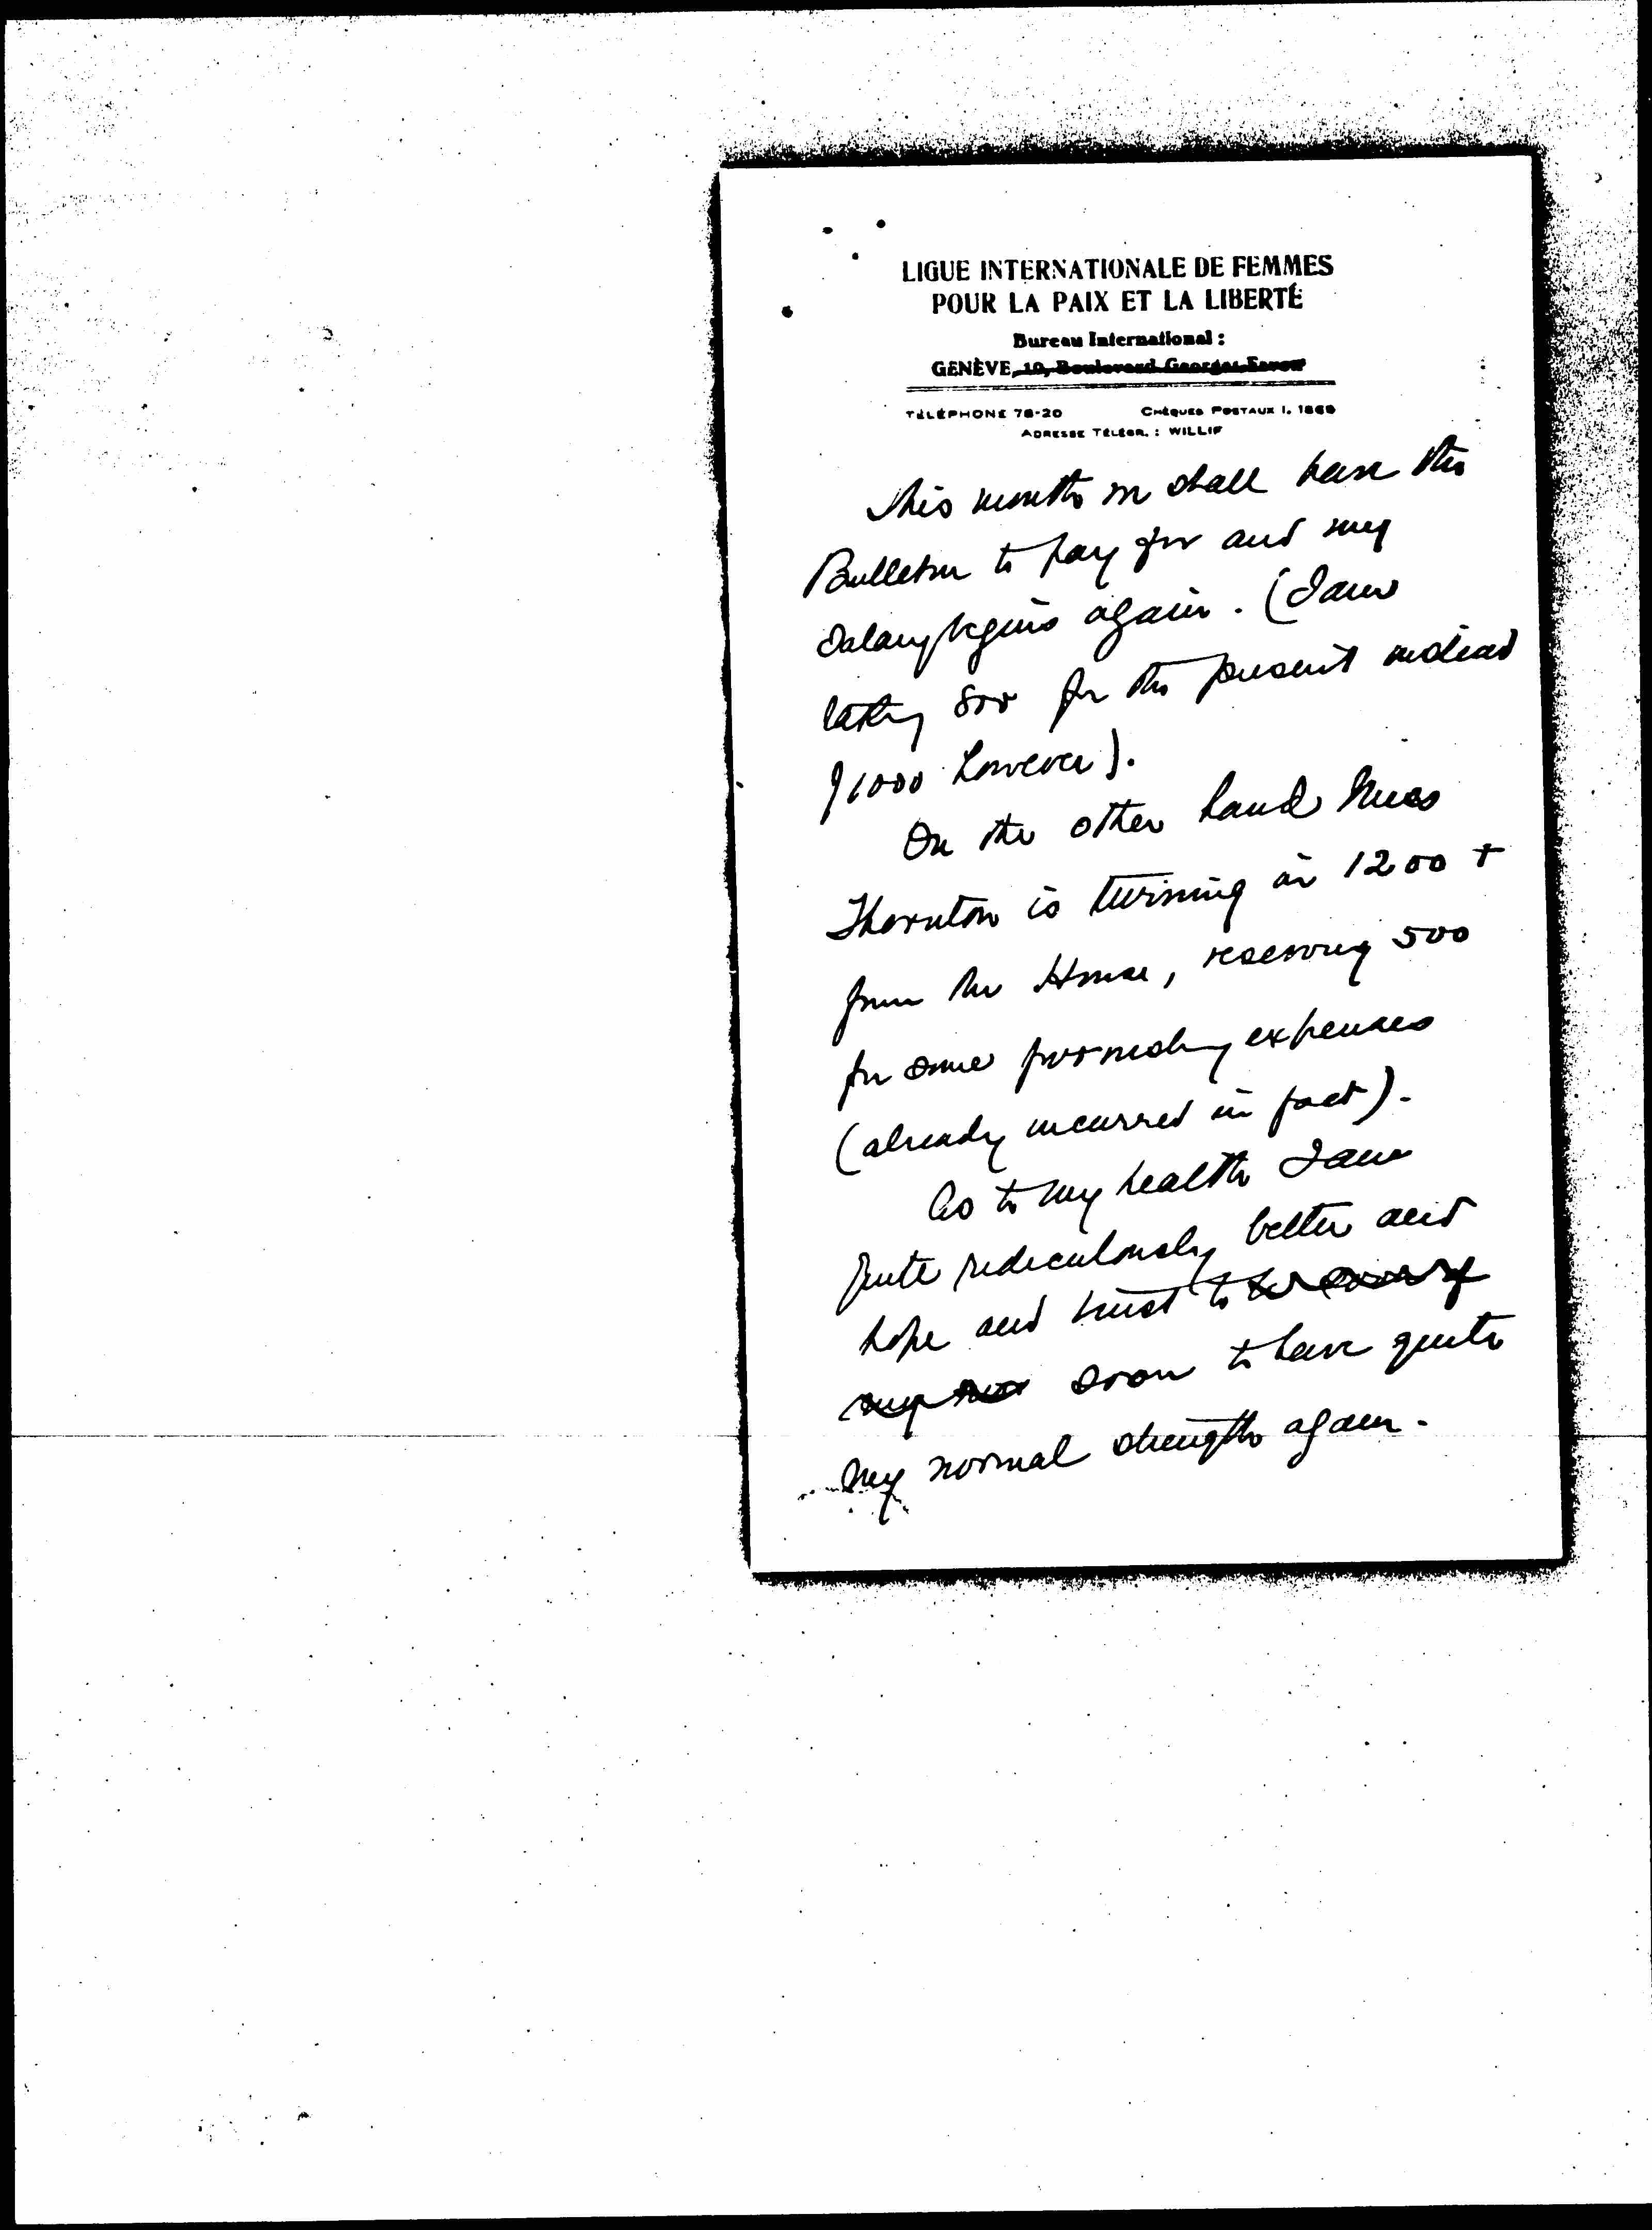 LIGUE INTERNATIONALE DE FEMMES
POUR LA PAIX ET LA LIBERTÉ
Bureau International :
GENÈVE, 10, Boulevard Georges-Favon
TÉLÉPHONE 78-20 CHÈQUES POSTAUX I. 1869
ADRESSE TÉLÉGR. : WILLIF
This month we shall have the
Bulletin to pay for and my
salary begins again. (I am
taking 800 for the present instead
of 1000 however).
On the other hand Miss
Thornton is turning in 1200 +
from the House, reserving 500
for some forwarding expenses
(already incurred in fact).
As to my health I am
quite rediculously better and
hope and trust to
my soon to have quite
my normal strength again.